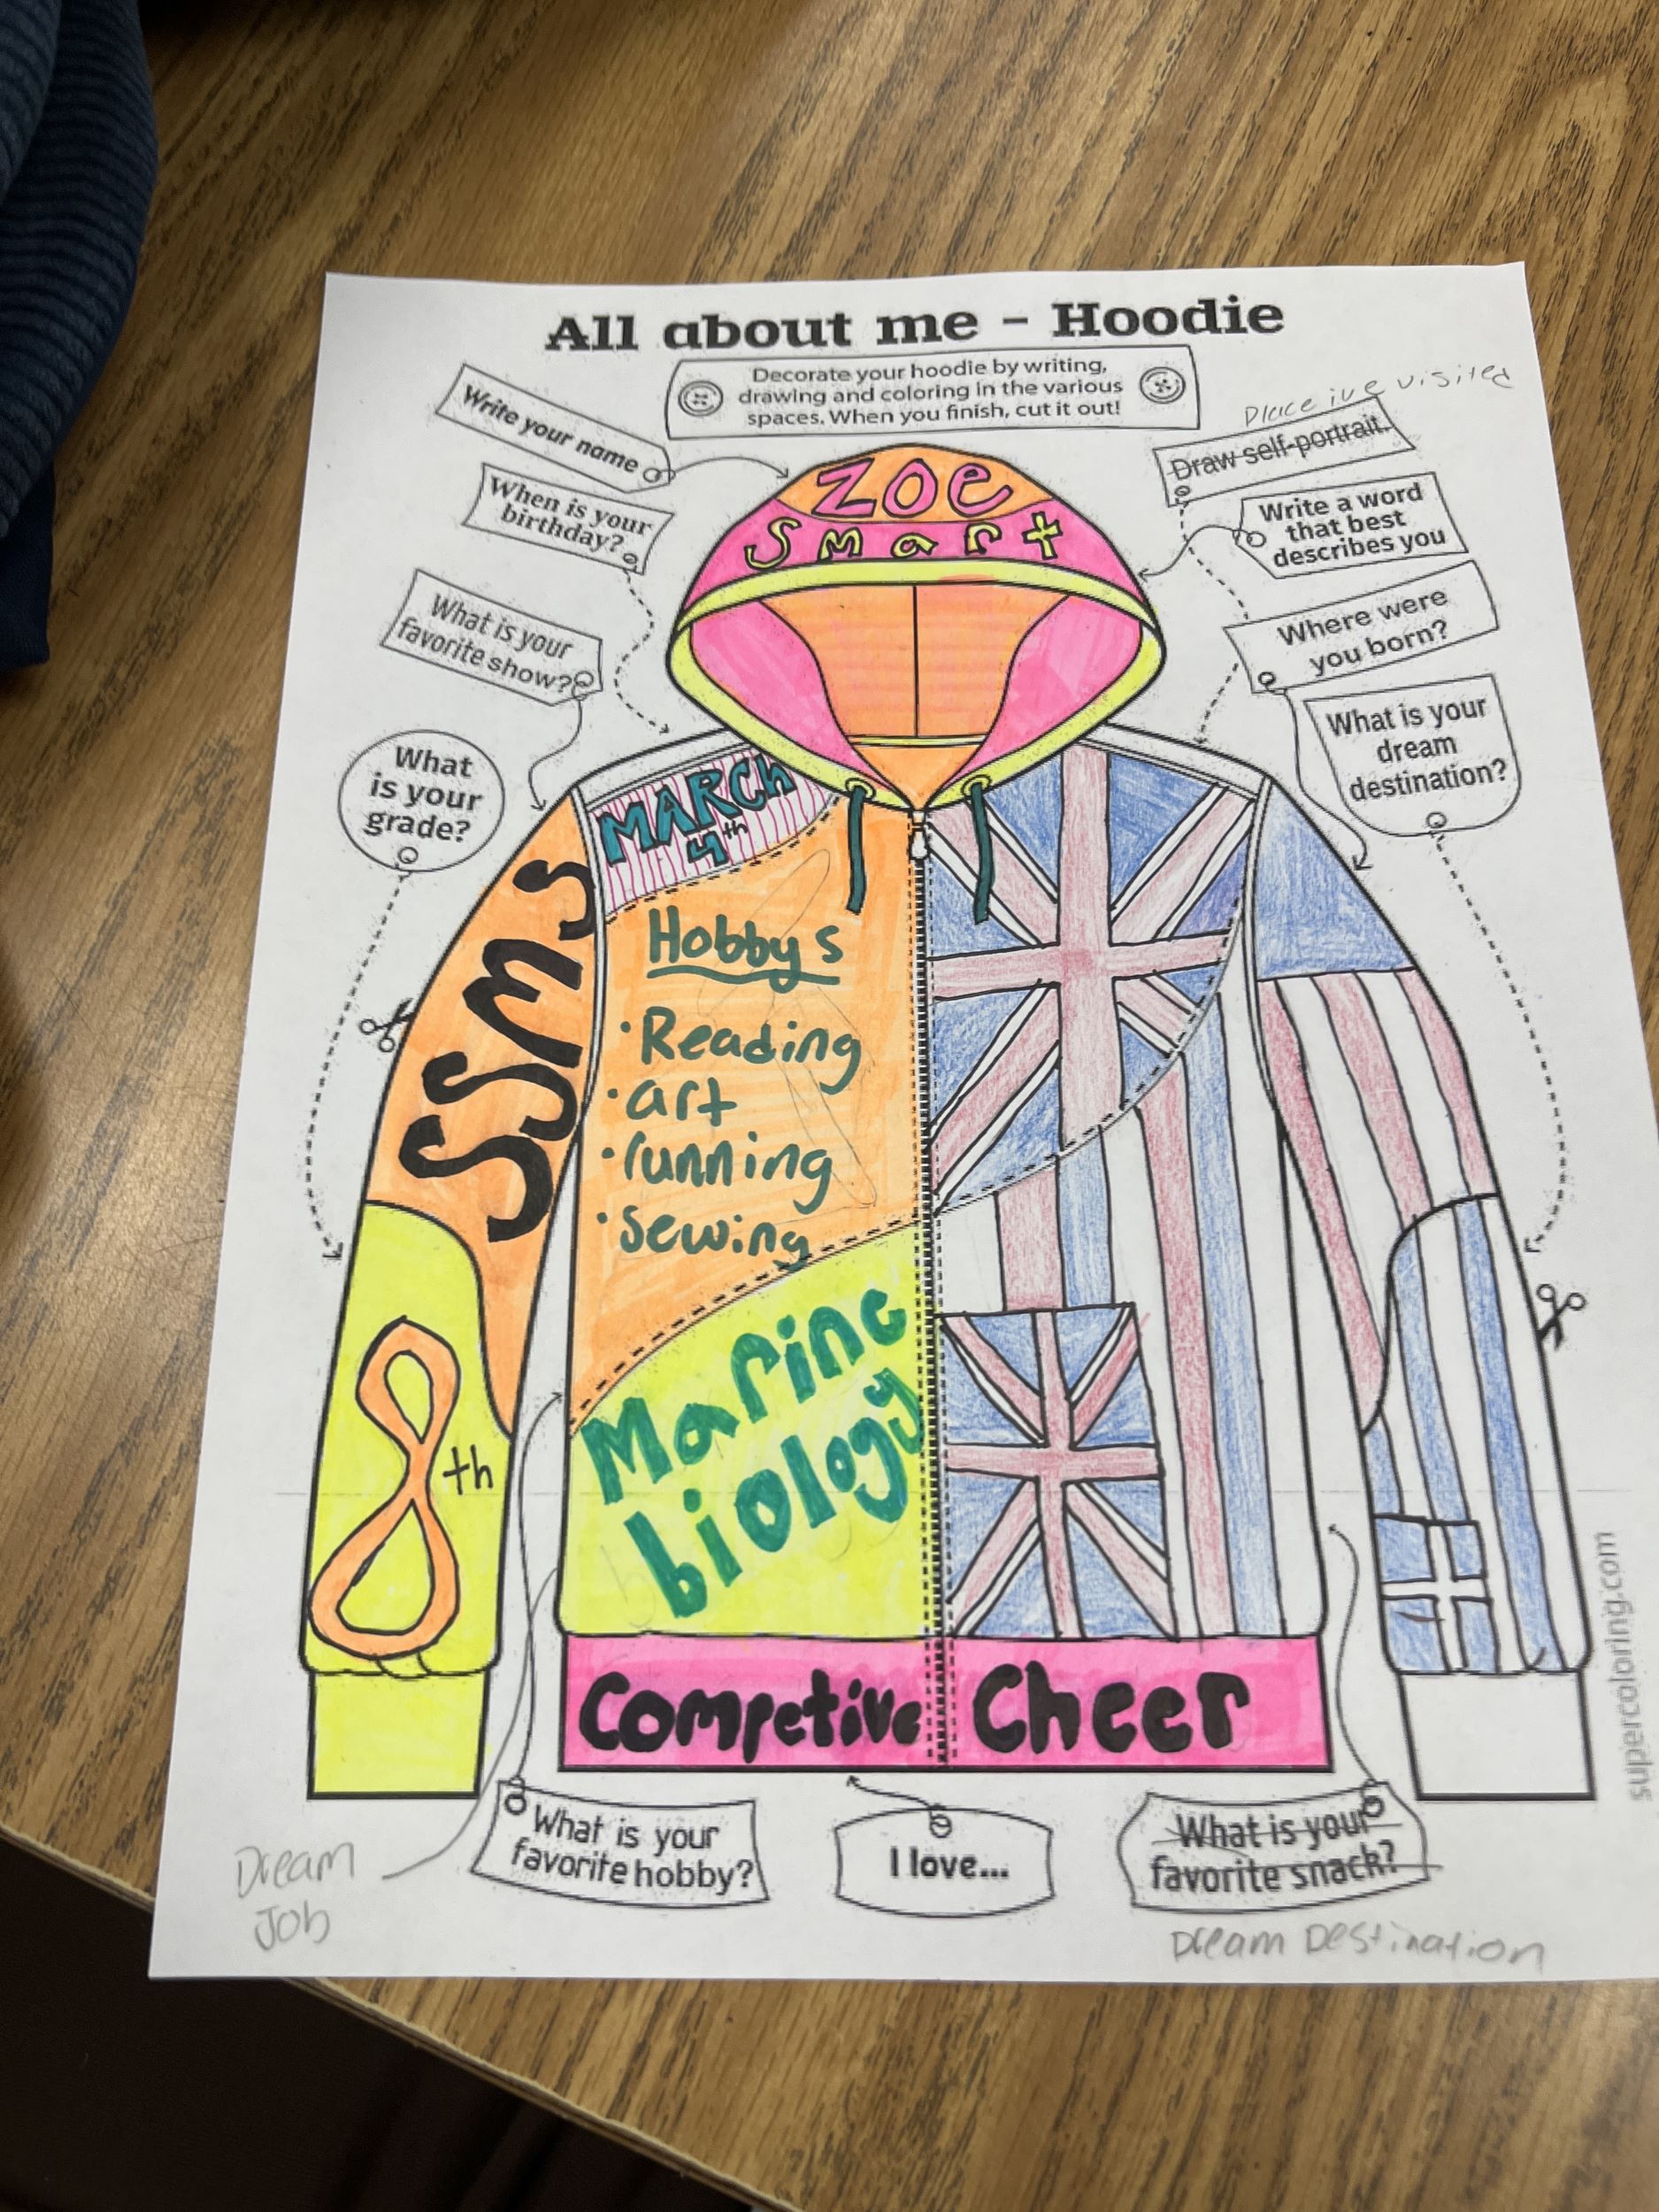 All about me - Hoodie
Decorate your hoodie by writing,
drawing and coloring in the various
spaces. When you finish, cut it out!
Place ive visited
Write your name
Draw self-portrait.
When is your
birthday?
Write a word
that best
describes you
Zoe
Smart
What is your
favorite show?
Where were
you born?
What
is your
grade?
What is your
dream
destination?
MARCH
4th
SSMS
Hobbys
· Reading
· art
· running
· sewing
Marine
biology
8th
Competive Cheer
What is your
favorite hobby?
I love...
What is your
favorite snack?
Dream
Job
Dream Destination
supercoloring.com